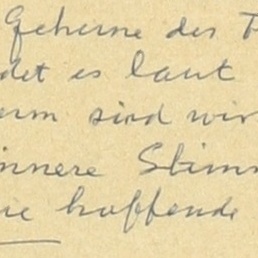 Gehirne des T
det es laut
erm sind wir
innere Stimm
ie hoffende